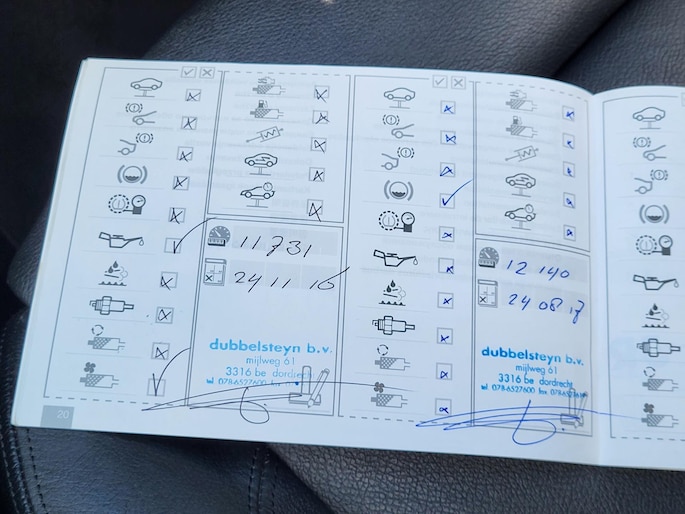 11 731
24 11 16
dubbelsteyn b.v.
mijlweg 61
3316 be dordrecht
tel. 078-6527600 fax 078-6527
20
12 140
24 08 17
dubbelsteyn b.v.
mijlweg 61
3316 be dordrecht
tel. 078-6527600 fax 078-6527619